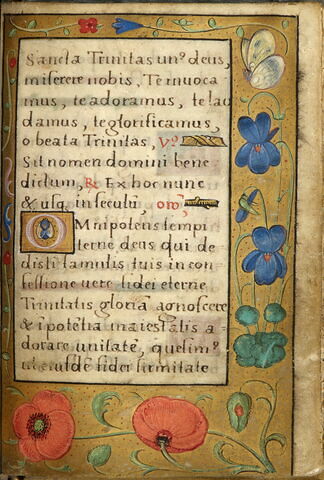 Sancta Trinitas unꝰ deus,
miserere nobis, Te invoca
mus, te adoramus, te lau
damus, te glorificamus,
o beata Trinitas, vꝰ
Sit nomen domini bene
dictum, ℞ Ex hoc nunc
& usq in seculū, oro,
Omnipotens sempi
terne deus qui de
disti famulis tuis in con
fessione vere fidei eterne
Trinitatis gloriā agnoscere
& ī potētia maiestatis a
dorare unitatē, quesimꝰ
ut eiusdē fidei firmitate